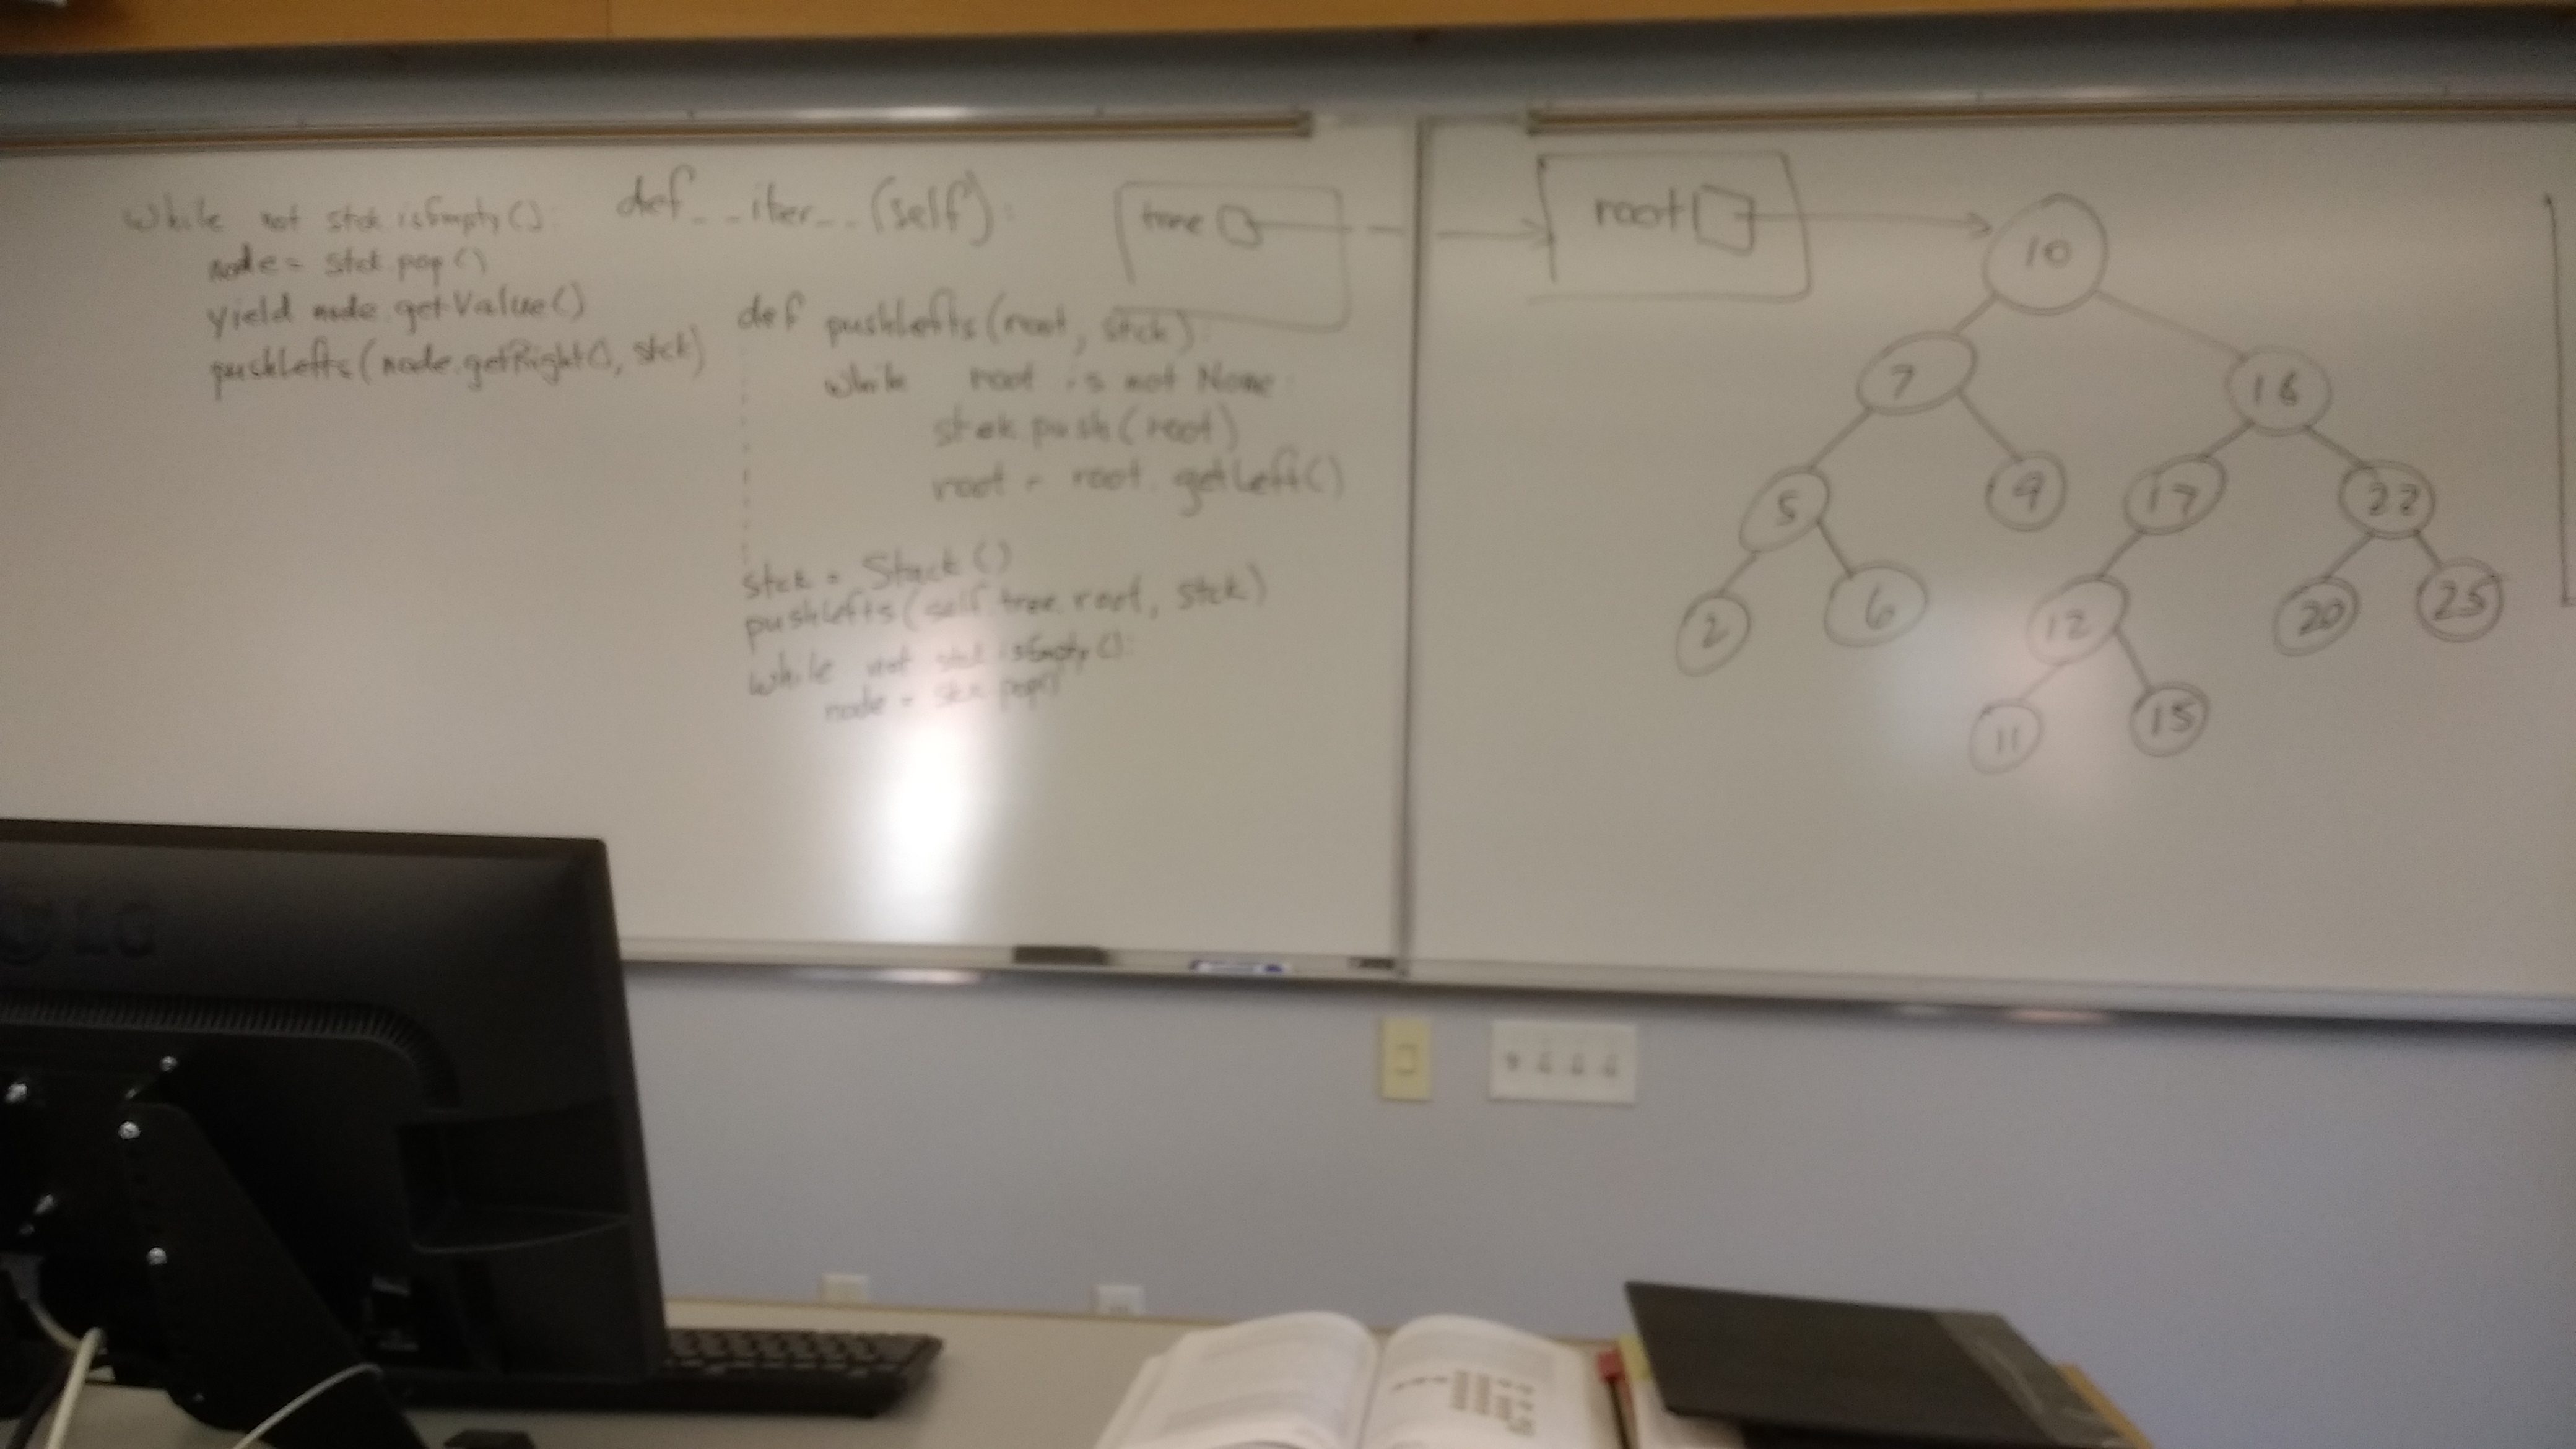 while not stck.isEmpty():
node = stck.pop()
yield node.getValue()
pushLefts(node.getRight(), stck)
def __iter__(self):
def pushLefts(root, stck):
while root is not None:
stck.push(root)
root = root.getLeft()
stck = Stack()
pushLefts(self.tree.root, stck)
while not stck.isEmpty():
node = stck.pop()
tree
root
10
7
16
5
9
17
22
2
6
12
20
25
11
15
LG